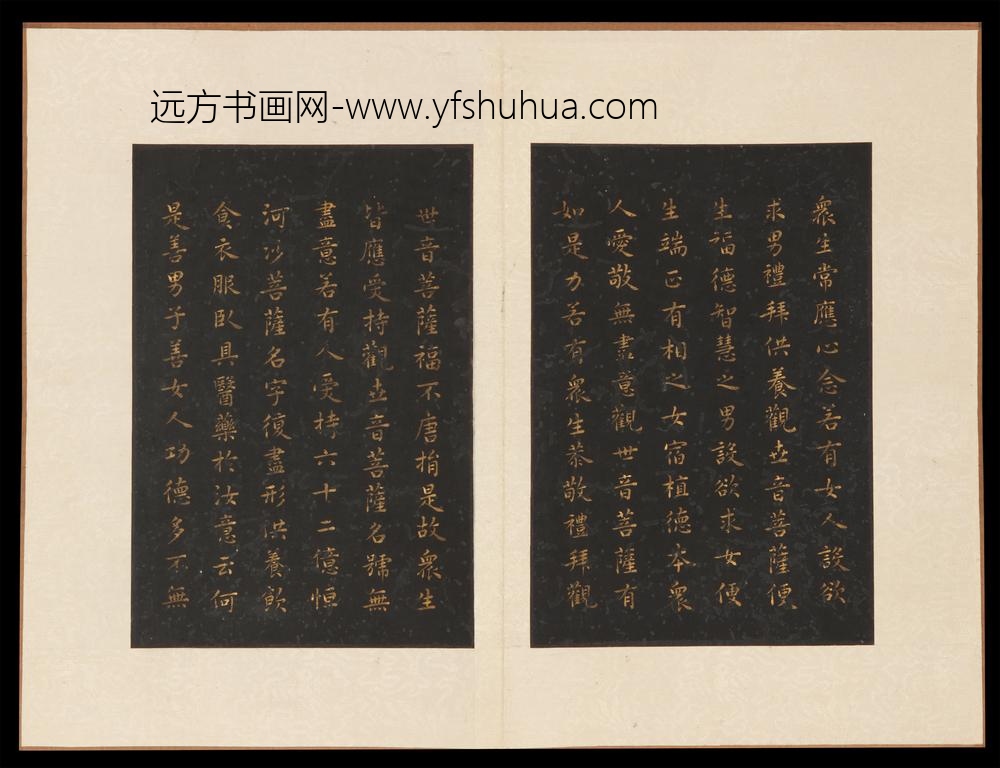 远方书画网-www.yfshuhua.com
衆生常應心念若有女人設欲
求男禮拜供養觀世音菩薩便
生福德智慧之男設欲求女便
生端正有相之女宿植德本衆
人愛敬無盡意觀世音菩薩有
如是力若有衆生恭敬禮拜觀
世音菩薩福不唐捐是故衆生
皆應受持觀世音菩薩名號無
盡意若有人受持六十二億恒
河沙菩薩名字復盡形供養飲
食衣服臥具醫藥於汝意云何
是善男子善女人功德多不無